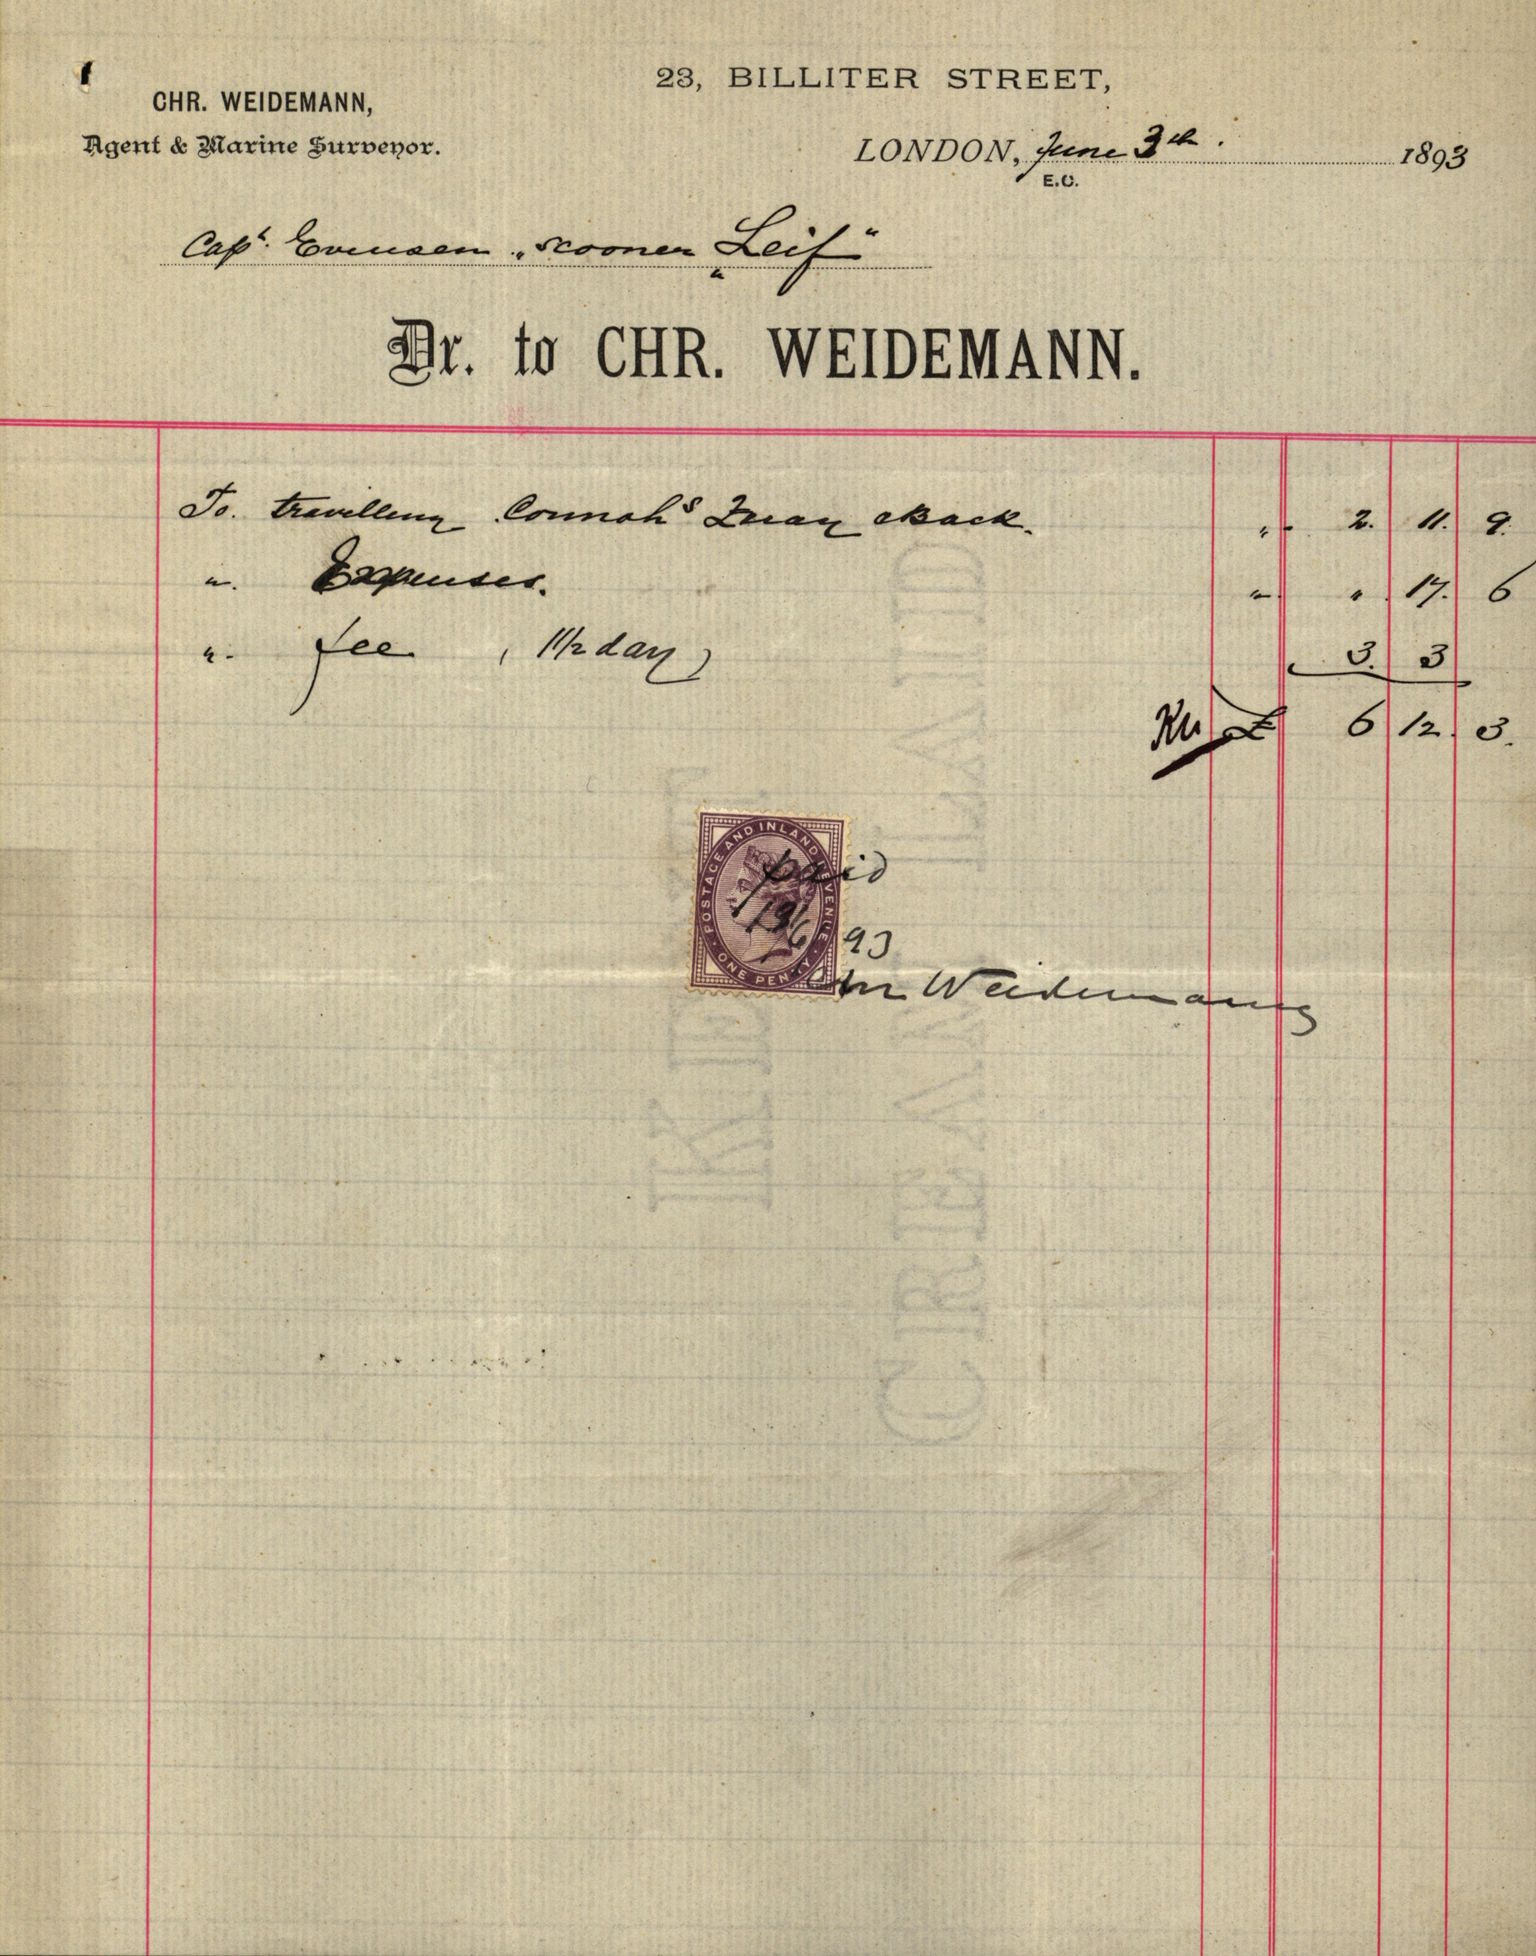 CHR. WEIDEMANN,
Agent & Marine Surveyor.
23, BILLITER STREET,
LONDON, June 3th. 1893
E.C.
Capt. Evensen „scooner „Leif"
Dr. to CHR. WEIDEMANN.
To. travelling Connahs Quay & Back. " 2. 11. 9.
". Expenses. " " 17. 6
". fee (1 1/2 day) 3. 3
£ 6 12. 3.
POSTAGE AND INLAND REVENUE
ONE PENNY
paid
13/6 93
Chr Weidemann
CREAM LAID